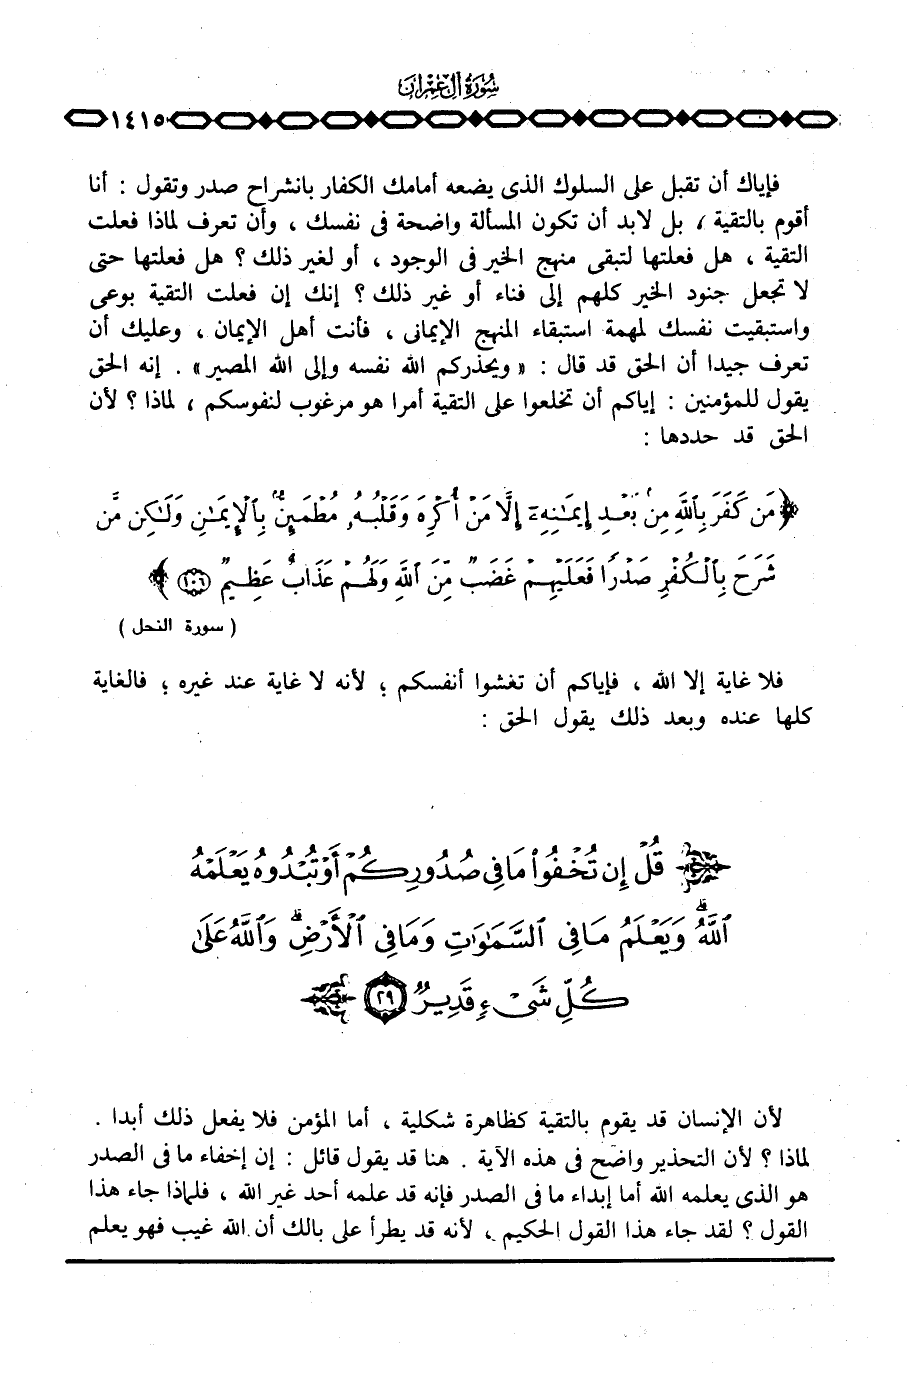 سورة آل عمران
١٤١٥
فإياك أن تقبل على السلوك الذى يضعه أمامك الكفار بانشراح صدر وتقول : أنا
أقوم بالتقية ، بل لابد أن تكون المسألة واضحة فى نفسك ، وأن تعرف لماذا فعلت
التقية ، هل فعلتها لتبقى منهج الخير فى الوجود ، أو لغير ذلك ؟ هل فعلتها حتى
لا تجعل جنود الخير كلهم إلى فناء أو غير ذلك ؟ إنك إن فعلت التقية بوعى
واستبقيت نفسك لمهمة استبقاء المنهج الإيمانى ، فأنت أهل الإيمان ، وعليك أن
تعرف جيدا أن الحق قد قال : « ويحذركم الله نفسه وإلى الله المصير » . إنه الحق
يقول للمؤمنين : إياكم أن تخلعوا على التقية أمرا هو مرغوب لنفوسكم ، لماذا ؟ لأن
الحق قد حددها :
﴿ مَن كَفَرَ بِٱللَّهِ مِنۢ بَعْدِ إِيمَٰنِهِۦٓ إِلَّا مَنْ أُكْرِهَ وَقَلْبُهُۥ مُطْمَئِنٌّۢ بِٱلْإِيمَٰنِ وَلَٰكِن مَّن
شَرَحَ بِٱلْكُفْرِ صَدْرًا فَعَلَيْهِمْ غَضَبٌ مِّنَ ٱللَّهِ وَلَهُمْ عَذَابٌ عَظِيمٌ ١٠٦ ﴾
( سورة النحل )
فلا غاية إلا الله ، فإياكم أن تغشوا أنفسكم ؛ لأنه لا غاية عند غيره ؛ فالغاية
كلها عنده وبعد ذلك يقول الحق :
قُلْ إِن تُخْفُوا۟ مَا فِى صُدُورِكُمْ أَوْ تُبْدُوهُ يَعْلَمْهُ
ٱللَّهُ ۗ وَيَعْلَمُ مَا فِى ٱلسَّمَٰوَٰتِ وَمَا فِى ٱلْأَرْضِ ۗ وَٱللَّهُ عَلَىٰ
كُلِّ شَىْءٍ قَدِيرٌ ٢٩
لأن الإنسان قد يقوم بالتقية كظاهرة شكلية ، أما المؤمن فلا يفعل ذلك أبدا .
لماذا ؟ لأن التحذير واضح فى هذه الآية . هنا قد يقول قائل : إن إخفاء ما فى الصدر
هو الذى يعلمه الله أما إبداء ما فى الصدر فإنه قد علمه أحد غير الله ، فلماذا جاء هذا
القول ؟ لقد جاء هذا القول الحكيم ، لأنه قد يطرأ على بالك أن الله غيب فهو يعلم